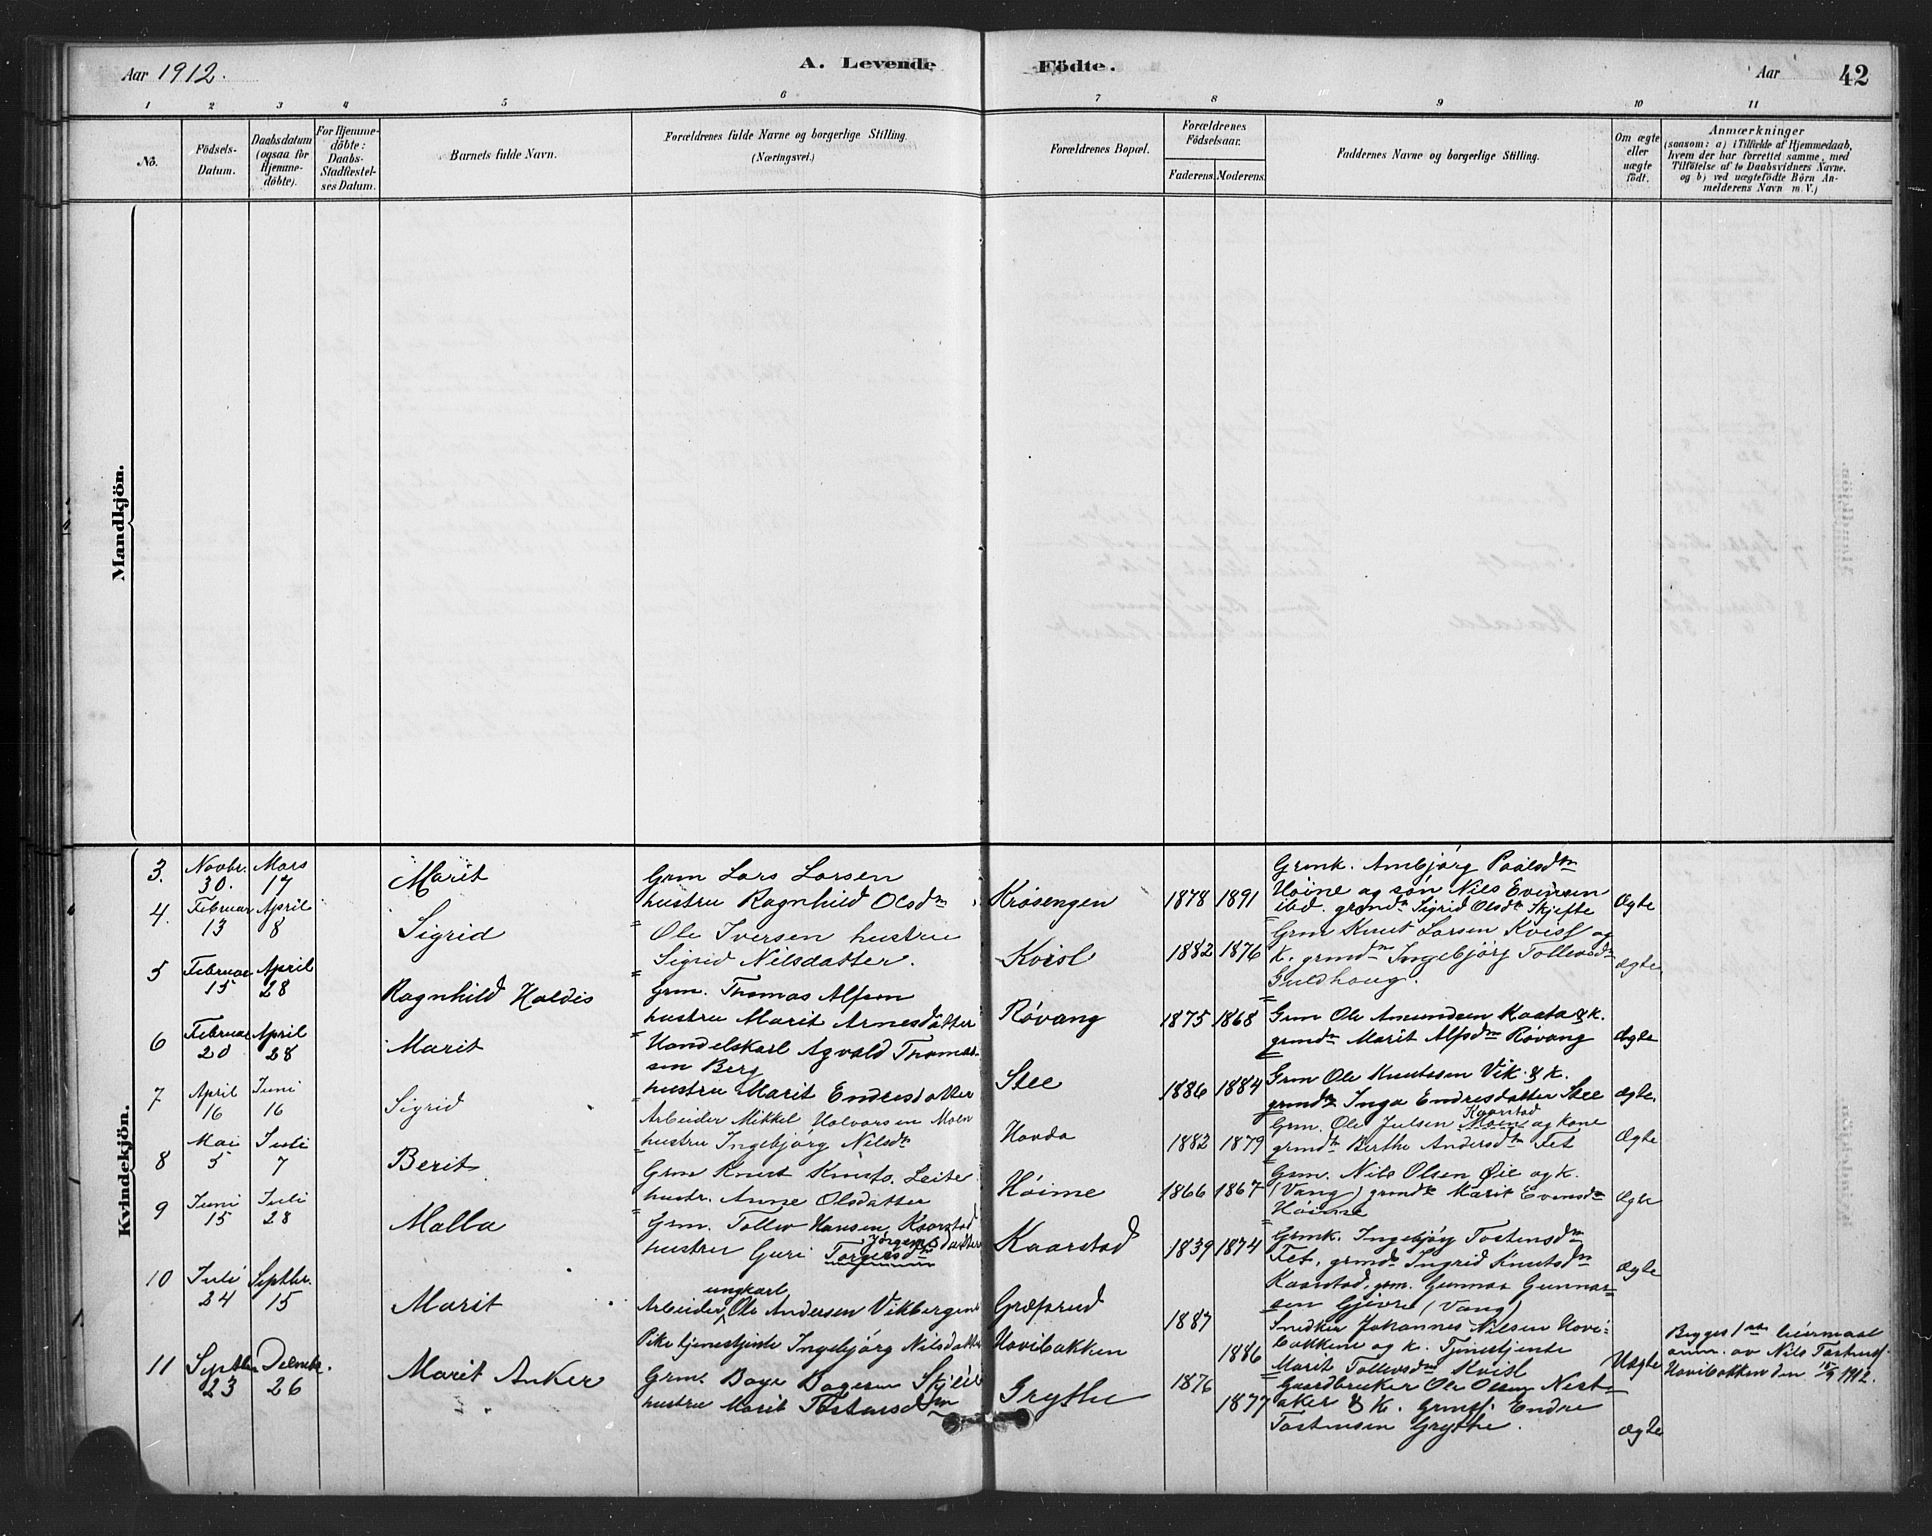 Aar 1912.
A. Levende
Födte.
Aar
42
1 2 3 4 5 6 7 8 9 10 11
No.
Födsels-
Datum.
Daabsdatum
(ogsaa for
Hjemme-
döbte).
For Hjemme-
döbte:
Daabs-
Stadfæstel-
ses Datum.
Barnets fulde Navn.
Forældrenes fulde Navne og borgerlige Stilling.
(Næringsvei.)
Forældrenes Bopæl.
Forældrenes
Födselsaar.
Faderens. Moderens.
Faddernes Navne og borgerlige Stilling.
Om ægte
eller
uægte
födt.
Anmærkninger
(saasom: a) i Tilfælde af Hjemmedaab,
hvem der har forrettet samme, med
Tilföielse af to Daabsvidners Navne.
og b) ved uægtefödte Börn An-
melderens Navn m. V.)
Mandkjön.
Kvindekjön.
3. Novbr. 30. Mars 17
Marit
Grm Lars Larsen
hustru Ragnhild Olsdtr
Kråsengen
1878 1891
Grmk. Ambjörg Paalsdtr
Höine og søn Nils Evensen
ibd. grmdtr Sigrid Olsdtr Skjefte
Ægte
4. Februar 13 April 8
Sigrid
Ole Iversen hustru
Sigrid Nilsdatter.
Kvisl
1882 1876
Grm Knut Larsen Kvisl og
k. grmdtr Ingebjörg Tollevsdtr
Guldhaug.
Ægte
5 Februar 15 April 28
Ragnhild Haldis
Grm. Thomas Alfson
hustru Marit Arnesdatter
Røvang
1875 1868
Grm Ole Amundsen Kaata & k.
grmdtr Marit Alfsdtr Røvang
Ægte
6 Februar 20 April 28
Marit
Handelskarl Agvald Thomas-
sen Berg
hustru Marit Endresdatter
Stee
1886 1884
Grm Ole Knutssen Vik & k.
grmdtr Inga Endresdatter Stee
Ægte.
7 April 16 Juni 16
Sigrid
Arbeider Mikkel Halvorsen Moen
hustru Ingebjörg Nilsdtr
Hovda
1882 1879
Kaarstad
Grm. Ole Julsen Moen og kone
grmdtr Berthe Andersdtr Fet
Ægte
8 Mai 5 Juli 7
Berit
Grm Knut Knuts. Leite
hustr. Anne Olsdatter
Höime
1866 1867
Grm. Nils Olsen Øie og k.
(Vang) grmdtr Marit Evensdtr
Höime
Ægte
9 Juni 15 Juli 28
Malla
Grm. Tollev Hansen Kaarstad
hustru Guri Torgersdtr
Kaarstad
1839 1874
Grmk. Ingebjörg Tostensdtr
Fet, grmdtr Ingrid Knutsdtr
Kaarstad, grm. Gunnar Gunnar-
sen Gjevre (Vang)
Ægte
10 Juli 24 Septbr. 15
Marit
ungkarl
Arbeider Ole Andersen Vikbergene
Pike tjenestjente Ingebjörg Nilsdatter
Græsrud
Hovibakken
1887
1886
Snedker Johannes Nilsen Hovi-
bakkene og k. Tjenestjente
Marit Tollevsdtr Kvisl
Uægte
Begges 1ste leiermaal
anm. av Nils Tostens.
Hovibakken den 15/9 1912.
11 Septbr 23
26
Marit Anker
Grm. Boye Boyesen Skjeld
hustru Marit Tostensdtr
Grythe
1876
1877
Gaardbruker Ole Olsen Nest-
aker & k. grmss. Endre
Tostensen Grythe.
Ægte